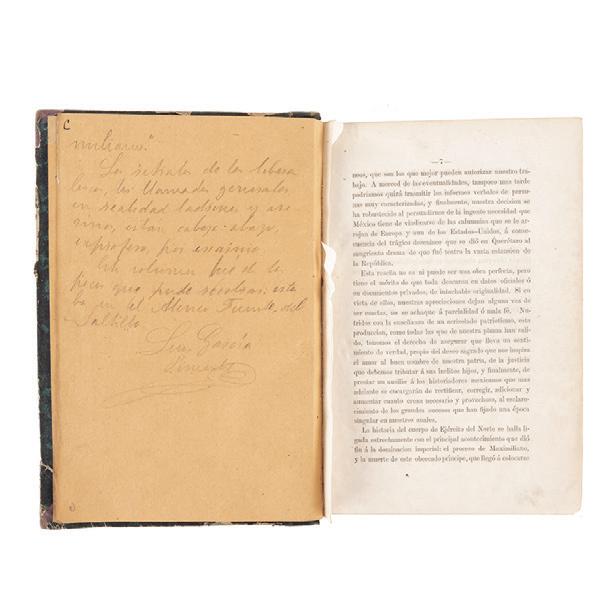 C
miliano".
Los retratos de los libera
les, los llamados generales
en realidad ladrones y ase
sinos, están cabeza abajo,
exprofeso, por
Este volumen fue de los
pocos que pude rescatar; esta
ba en el Ateneo Fuente, del
Saltillo
García
— 7 —
nos, que son los que mejor pueden autorizar nuestro tra-
bajo. A merced de las eventualidades, tampoco mas tarde
podriamos quizá trasmitir los informes verbales de perso-
nas muy caracterizadas, y finalmente, nuestra decision se
ha robustecido al persuadirnos de la ingente necesidad que
México tiene de vindicarse de las calumnias que se le ar-
rojan de Europa y aun de los Estados-Unidos, á conse-
cuencia del trágico desenlace que se dió en Querétaro al
sangriento drama de que fué teatro la vasta extension de
la República.
Esta reseña no es ni puede ser una obra perfecta, pero
tiene el mérito de que toda descansa en datos oficiales ó
en documentos privados, de intachable originalidad. Si en
vista de ellos, nuestras apreciaciones dejan alguna vez de
ser exactas, no se achaque á parcialidad ó mala fé. Nu-
tridos con la enseñanza de un acrisolado patriotismo, esta
produccion, como todas las que de nuestra pluma han sali-
do, tenemos el derecho de asegurar que lleva un senti-
miento de verdad, propio del deseo sagrado que nos inspira
el amor al buen nombre de nuestra patria, de la justicia
que debemos tributar á sus ínclitos hijos, y finalmente, de
prestar un auxilio á los historiadores mexicanos que mas
adelante se encargarán de rectificar, corregir, adicionar y
aumentar cuanto crean necesario y provechoso, al esclare-
cimiento de los grandes sucesos que han fijado una época
singular en nuestros anales.
La historia del cuerpo de Ejército del Norte se halla li-
gada estrechamente con el principal acontecimiento que dió
fin á la dominacion imperial: el proceso de Maximiliano,
y la muerte de este obcecado príncipe, que llegó á colocarse